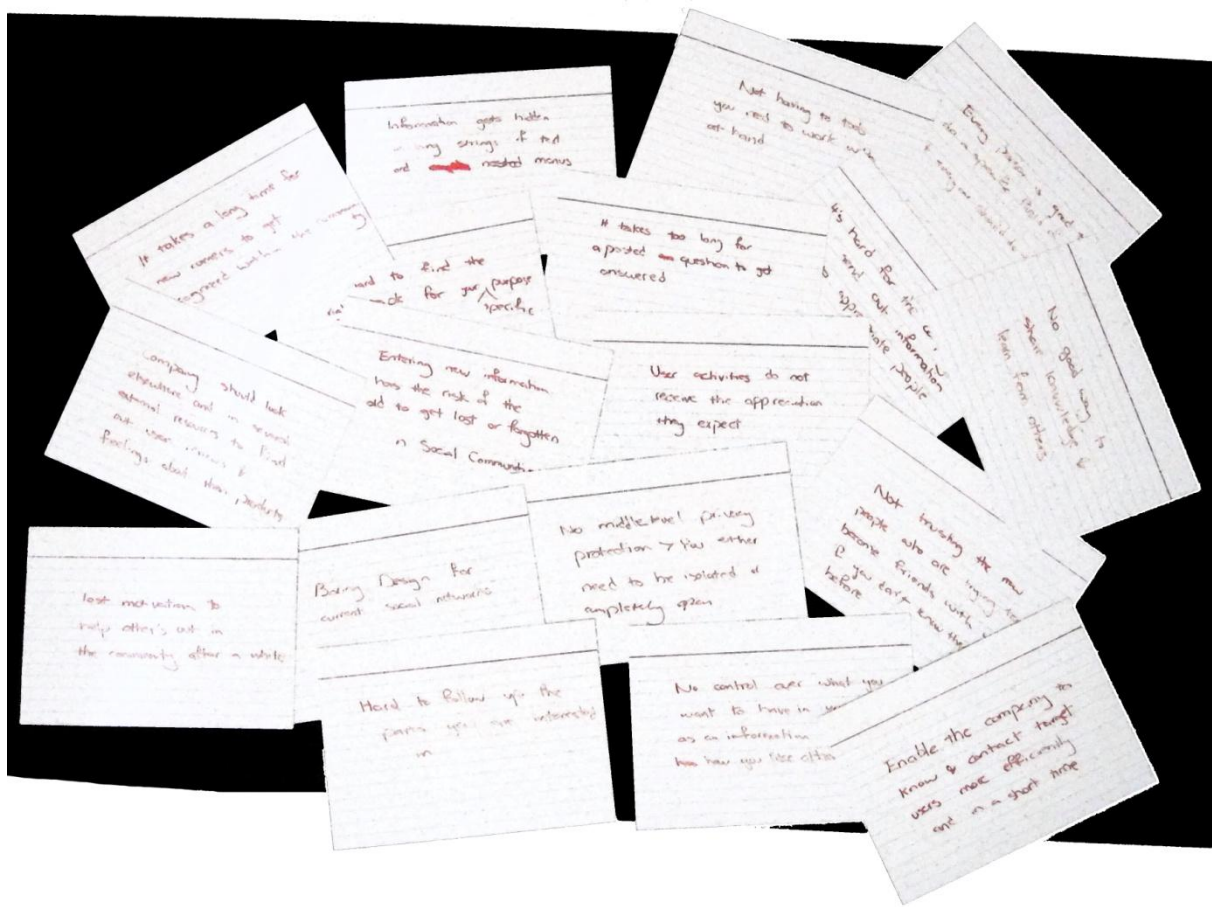 Information gets hidden
strings of text
and nested menus
Not having to tools
you need to work with
at-hand
Every person is good
in a specific
It takes a long time for
new comers to get
within the
to find the
for your specific purpose
It takes too long for
a posted question to get
answered
it's hard for the
send out information
people
No good way to
share knowledge &
learn from others
Company should look
elsewhere and in several
external resources to find
out users views &
feelings about their products
Entering new information
has the risk of the
old to get lost or forgotten
n Social Communities
User activities do not
receive the appreciation
they expect
Not trusting the new
people who are trying to
become friends with
if you don't know them
before
lost motivation to
help other's out in
the community after a while
Boring Design for
current social networks
No middle level privacy
protection > You either
need to be isolated or
completely open
Hard to follow up the
parts you are interested
in
No control over what you
want to have in
as an information
how you like
Enable the company to
know & contact target
users more efficiently
and in a short time